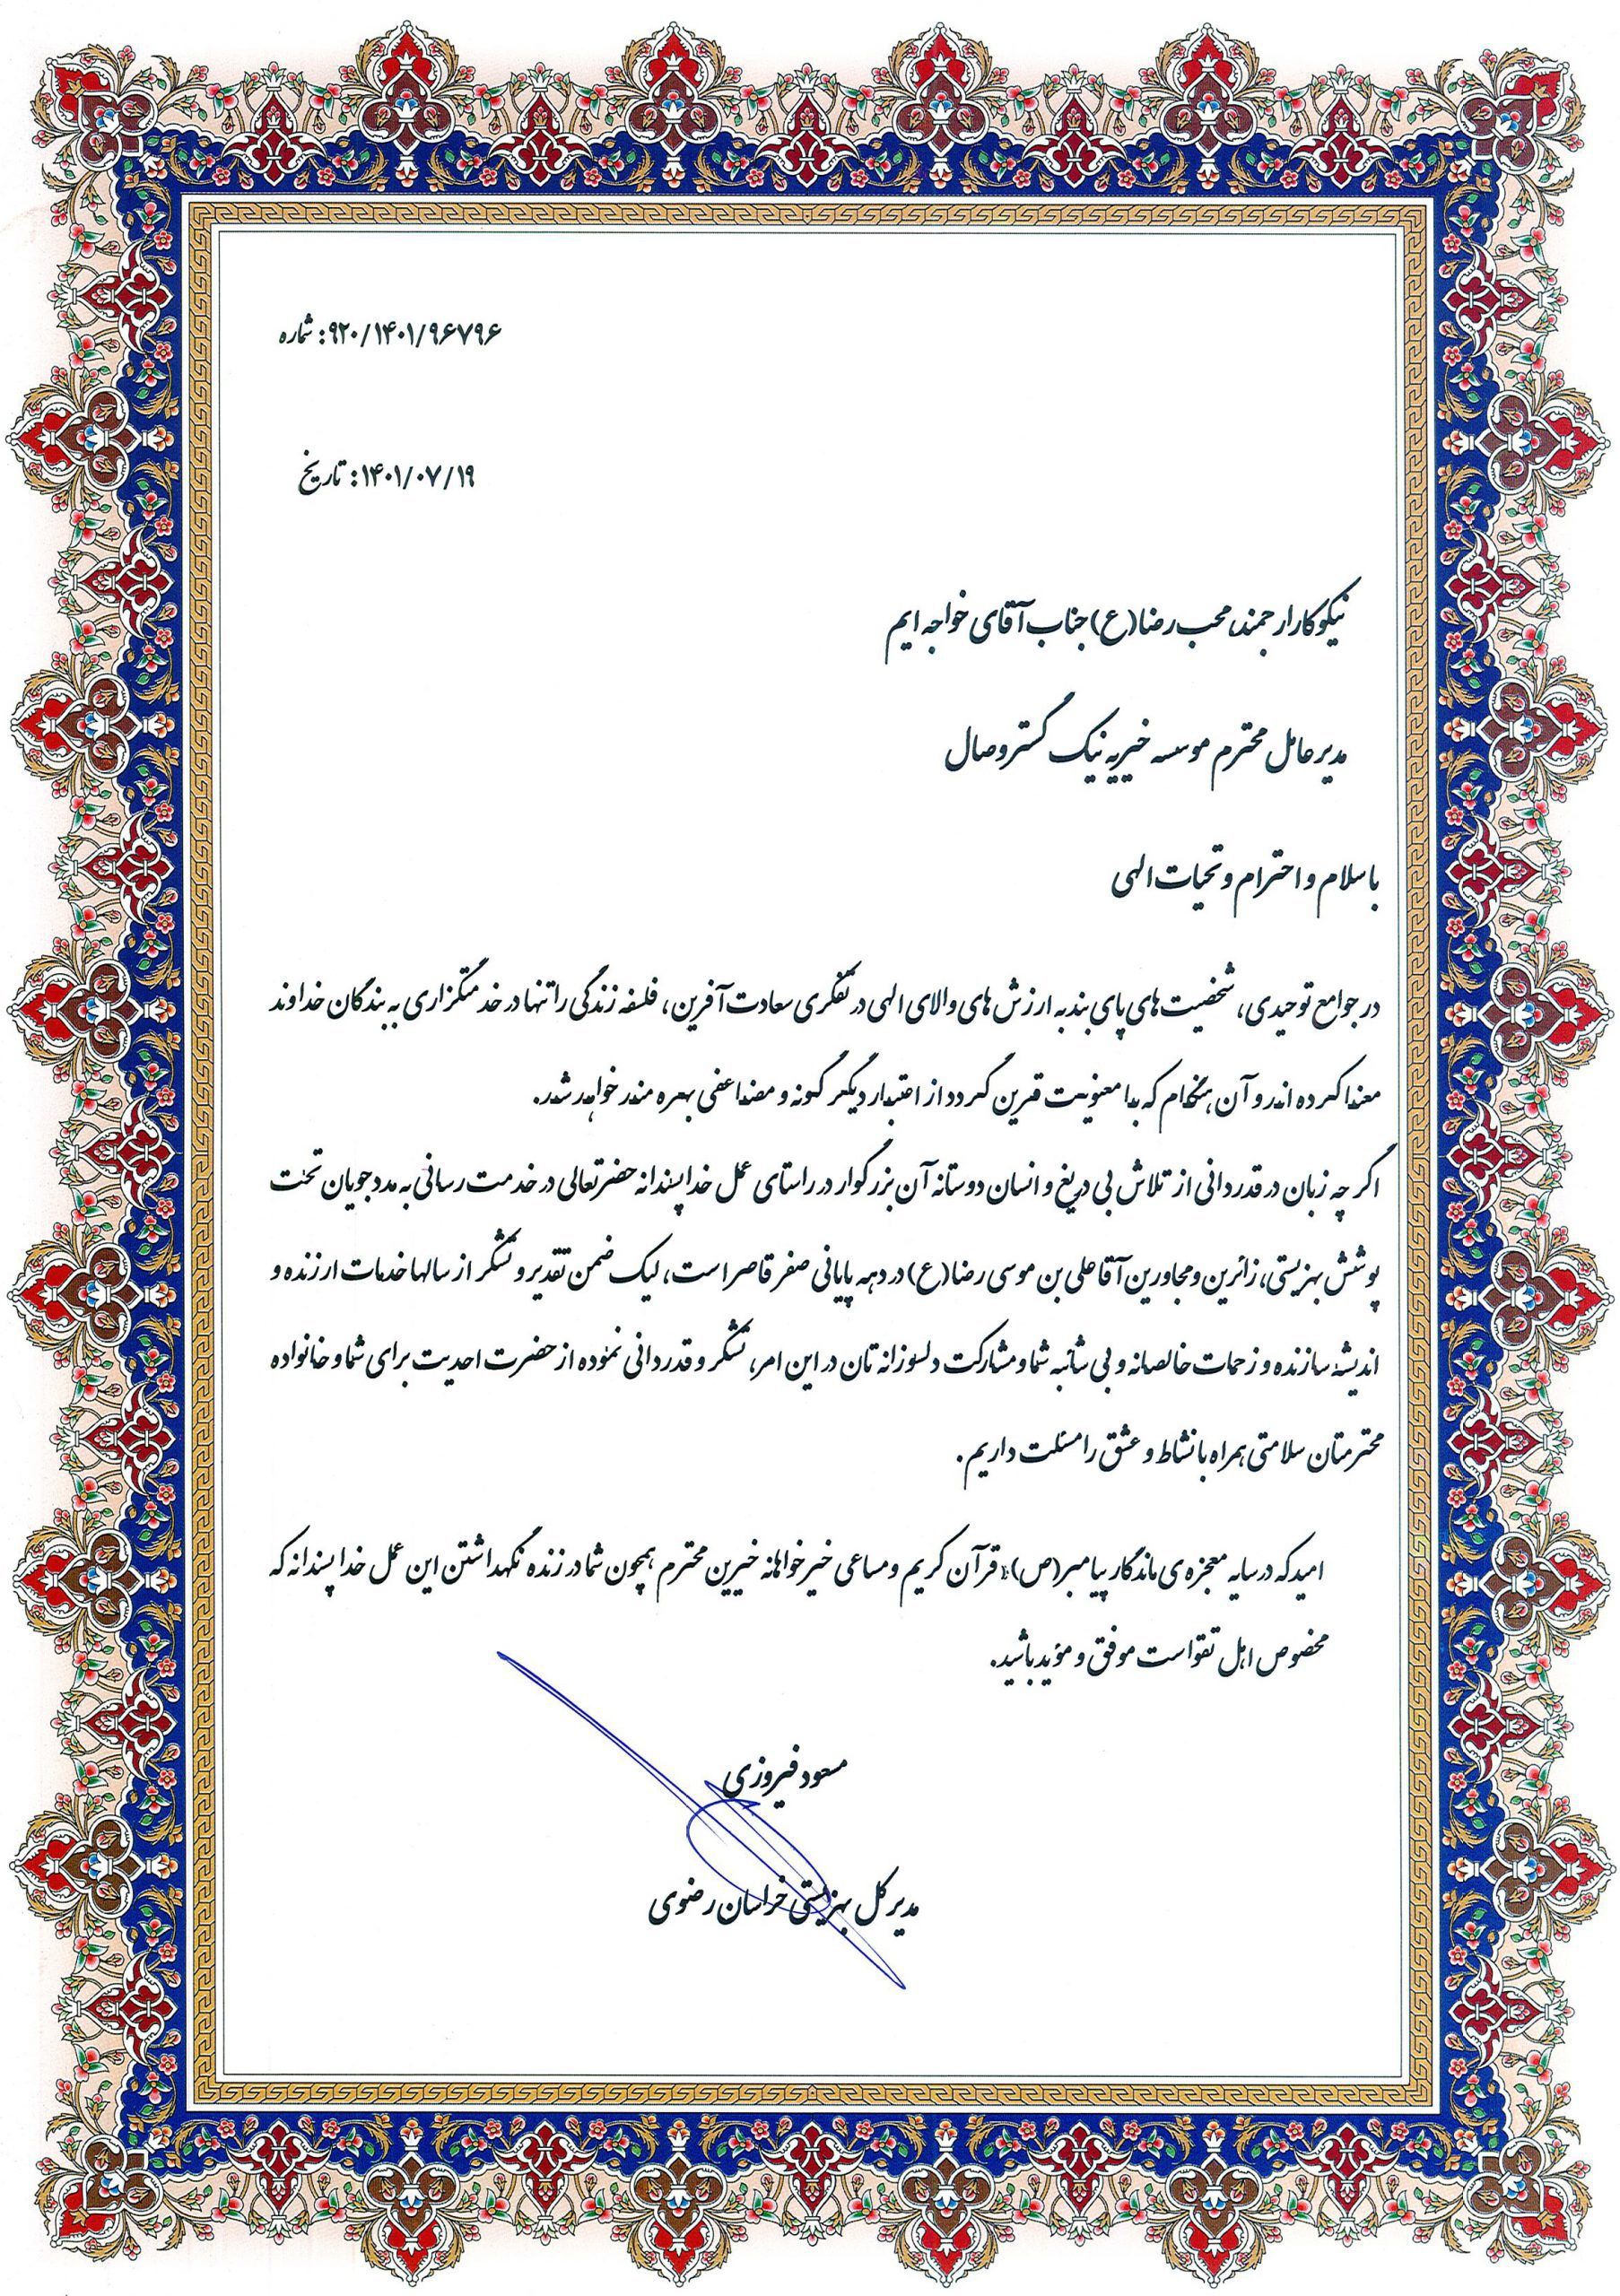 شماره :۹۲۰/۱۴۰۱/۹۶۷۹۶
تاریخ :۱۴۰۱/۰۷/۱۹
نیکوکار ارجمند، محب رضا(ع) جناب آقای خواجه ایم
مدیر عامل محترم موسسه خیریه نیک گستر وصال
با سلام و احترام و تحیات الهی
در جوامع توحیدی، شخصیت های پای بند به ارزش های والای الهی در تفکری سعادت آفرین، فلسفه زندگی را تنها در خدمتگزاری به بندگان خداوند
معنا کرده اند و آن هنگام که با معنویت قرین گردد از اعتبار دیگر گونه و مضاعفی بهره مند خواهد شد.
اگر چه زبان در قدردانی از تلاش بی دریغ و انسان دوستانه آن بزرگوار در راستای عمل خداپسندانه حضرتعالی در خدمت رسانی به مددجویان تحت
پوشش بهزیستی، زائرین و مجاورین آقا علی بن موسی رضا(ع) در دهه پایانی صفر قاصر است، لیک ضمن تقدیر و تشکر از سالها خدمات ارزنده و
اندیشه سازنده و زحمات خالصانه و بی شائبه شما و مشارکت دلسوزانه تان در این امر، تشکر و قدردانی نموده از حضرت احدیت برای شما و خانواده
محترمتان سلامتی همراه با نشاط و عشق را مسئلت داریم.
امید که در سایه معجزه ی ماندگار پیامبر(ص)؛ قرآن کریم و مساعی خیرخواهانه خیرین محترم همچون شما در زنده نگهداشتن این عمل خداپسندانه که
مخصوص اهل تقواست موفق و موید باشید.
مسعود فیروزی
مدیر کل بهزیستی خراسان رضوی